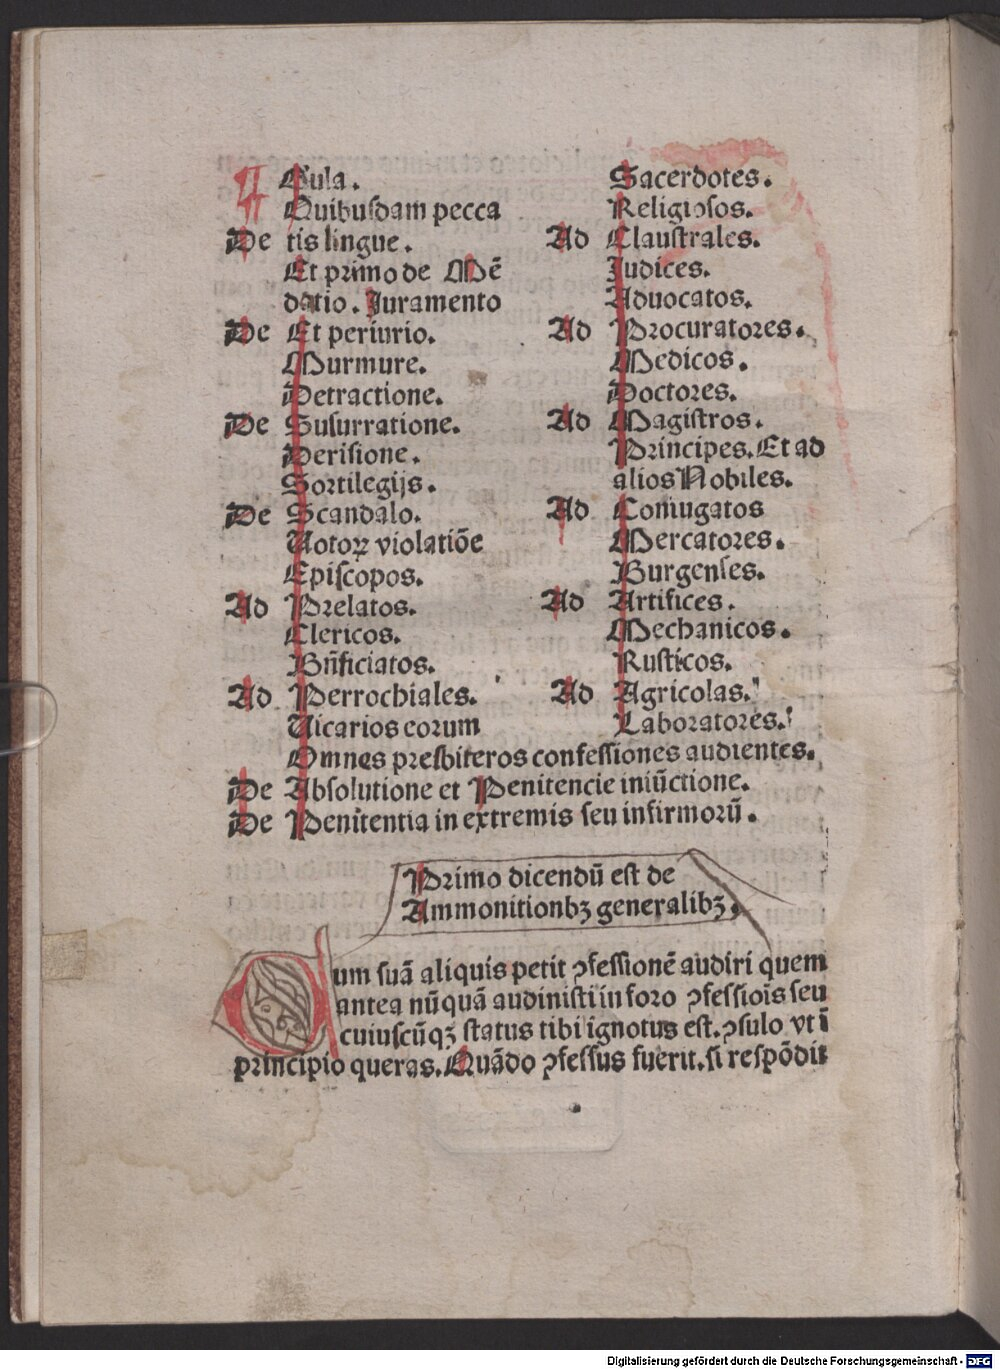 Gula.
Quibuſdam pecca
De tis lingue.
Et primo de Mē
datio. Juramento
De Et periurio.
Murmure.
Detractione.
De Suſurratione.
Deriſione.
Sortilegijs.
De Scandalo.
Uotoꝝ violatiōe
Epiſcopos.
Ad Prelatos.
Clericos.
Bn̄ficiatos.
Ad Perrochiales.
Uicarios eorum
Sacerdotes.
Religioſos.
Ad Clauſtrales.
Judices.
Aduocatos.
Ad Procuratores.
Medicos.
Doctores.
Ad Magiſtros.
Principes. Et ad
alios Nobiles.
Ad Coniugatos
Mercatores.
Burgenſes.
Ad Artifices.
Mechanicos.
Ruſticos.
Ad Agricolas.
Laboratores.
Omnes preſbiteros confeſſiones audientes.
De Abſolutione et Penitencie iniūctione.
De Penitentia in extremis ſeu infirmorū.
Primo dicendū eſt de
Ammonitionbꝫ generalibꝫ.
Cum ſuā aliquis petit ꝯfeſſionē audiri quem
antea nūquā audiniſti in foro ꝯfeſſiois ſeu
cuiuſcūqꝫ ſtatus tibi ignotus eſt. ꝯſulo vt ī
principio queras. Quādo ꝯfeſſus fuerit. ſi reſpōdit
Digitalisierung gefördert durch die Deutsche Forschungsgemeinschaft - DFG